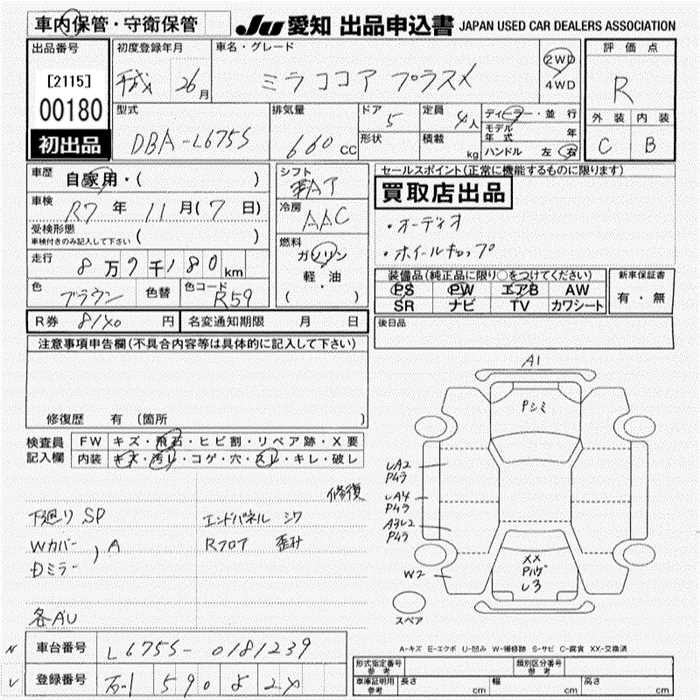 車内保管・守衛保管
JU 愛知 出品申込書 JAPAN USED CAR DEALERS ASSOCIATION
出品番号
[2115]
00180
初出品
初度登録年月
平成 26月
車名・グレード
ミラココア プラスX
2WD
4WD
評価点
R
外装 内装
C B
型式
DBA-L675S
排気量
660 cc
ドア
5
形状
定員
4人
積載
kg
ディーラー・並行
モデル年式 年
ハンドル 左 右
車歴
自家用・( )
車検
R7年 11月(7日)
受検形態
車検付きのみ記入して下さい ( )
走行
8万9千180km
色
ブラウン
色替
色コード
R59
R券 8140円
名変通知期限 月 日
シフト
AT
冷房
AAC
燃料
ガソリン
軽・油
( ・ )
セールスポイント(正常に機能するものに限ります)
買取店出品
・オーディオ
・ホイールキャップ
装備品(純正品に限り○をつけてください)
PS PW エアB AW
SR ナビ TV カワシート
新車保証書
有・無
後日品
注意事項申告欄(不具合内容等は具体的に記入して下さい)
修復歴 有 (箇所 )
検査員記入欄
FW キズ・飛石・ヒビ割・リペア跡・X要
内装 キズ・汚レ・コゲ・穴・スレ・キレ・破レ
修復
下廻り SP
Wカバー
Dミラー
A
各AU
エンドパネル シワ
Rフロア 歪み
A1
Pシミ
UA2
P4ラ
UA4
P4ラ
A3U2
P4ラ
W2
XX
Pハゲ
U3
スペア
A-キズ E-エクボ U-凹み W-補修跡 S-サビ C-腐食 XX-交換済
車台番号
L675S-0181239
登録番号
590
形式指定番号
参考
類別区分番号
参考
車庫証明用
参考
長さ cm
幅 cm
高さ cm